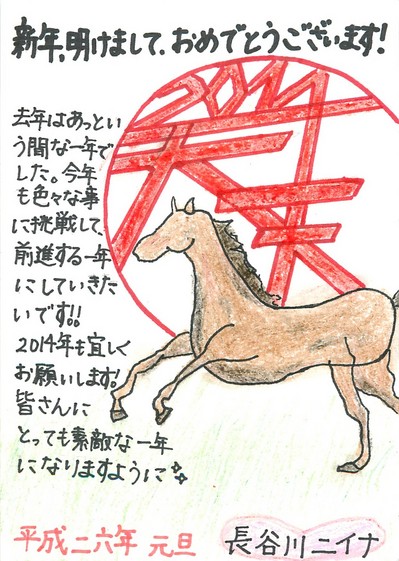 新年、明けまして、おめでとうございます!
2014
去年はあっとい
う間な一年で
した。今年
も色々な事
に挑戦して、
前進する一年
にしていきた
いです!!
2014年も宜しく
お願いします!
皆さんに
とっても素敵な一年
になりますように
平成二六年 元旦
長谷川ニイナ